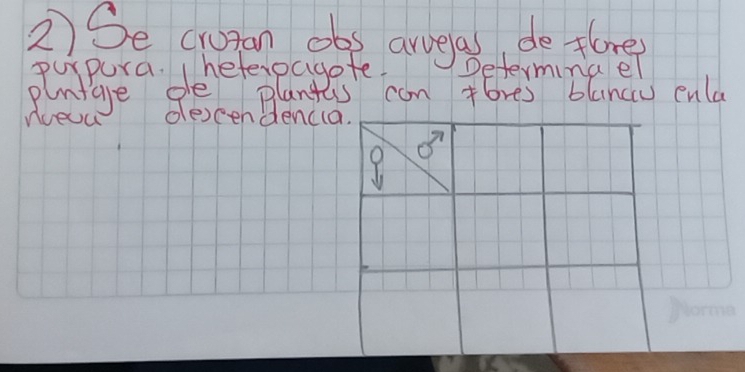 2) Se cruzan obs arvejas de flores
purpura. heterocigote. Determina el
puntaje de plantas con flores blancas en la
nueva descendencia.
♂
♀
Norma